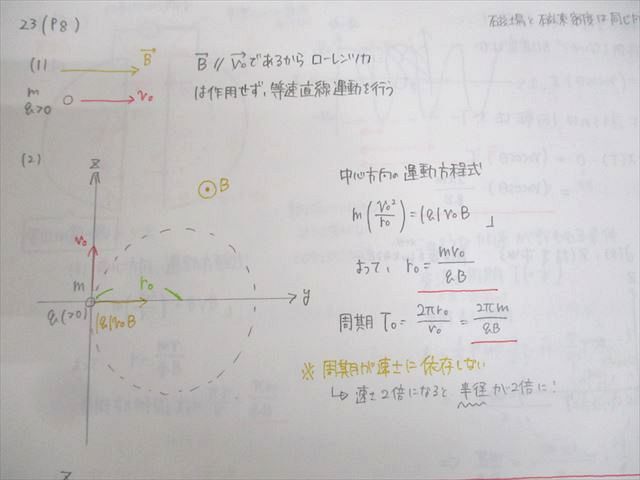 23 (P8)
磁場と磁束密度は同じ
(1)
B
m
q>0
v₀
B // v₀ であるから ローレンツ力
は作用せず、等速直線運動を行う
(2)
z
B
v₀
m
q(>0)
r₀
|q|v₀B
y
中心方向の運動方程式
m(v₀²/r₀) = |q|v₀B 」
よって、 r₀ = mv₀/qB
周期 T₀ = 2πr₀/v₀ = 2πm/qB
※ 周期が速さに依存しない
↳ 速さ2倍になると 半径が2倍に!
z